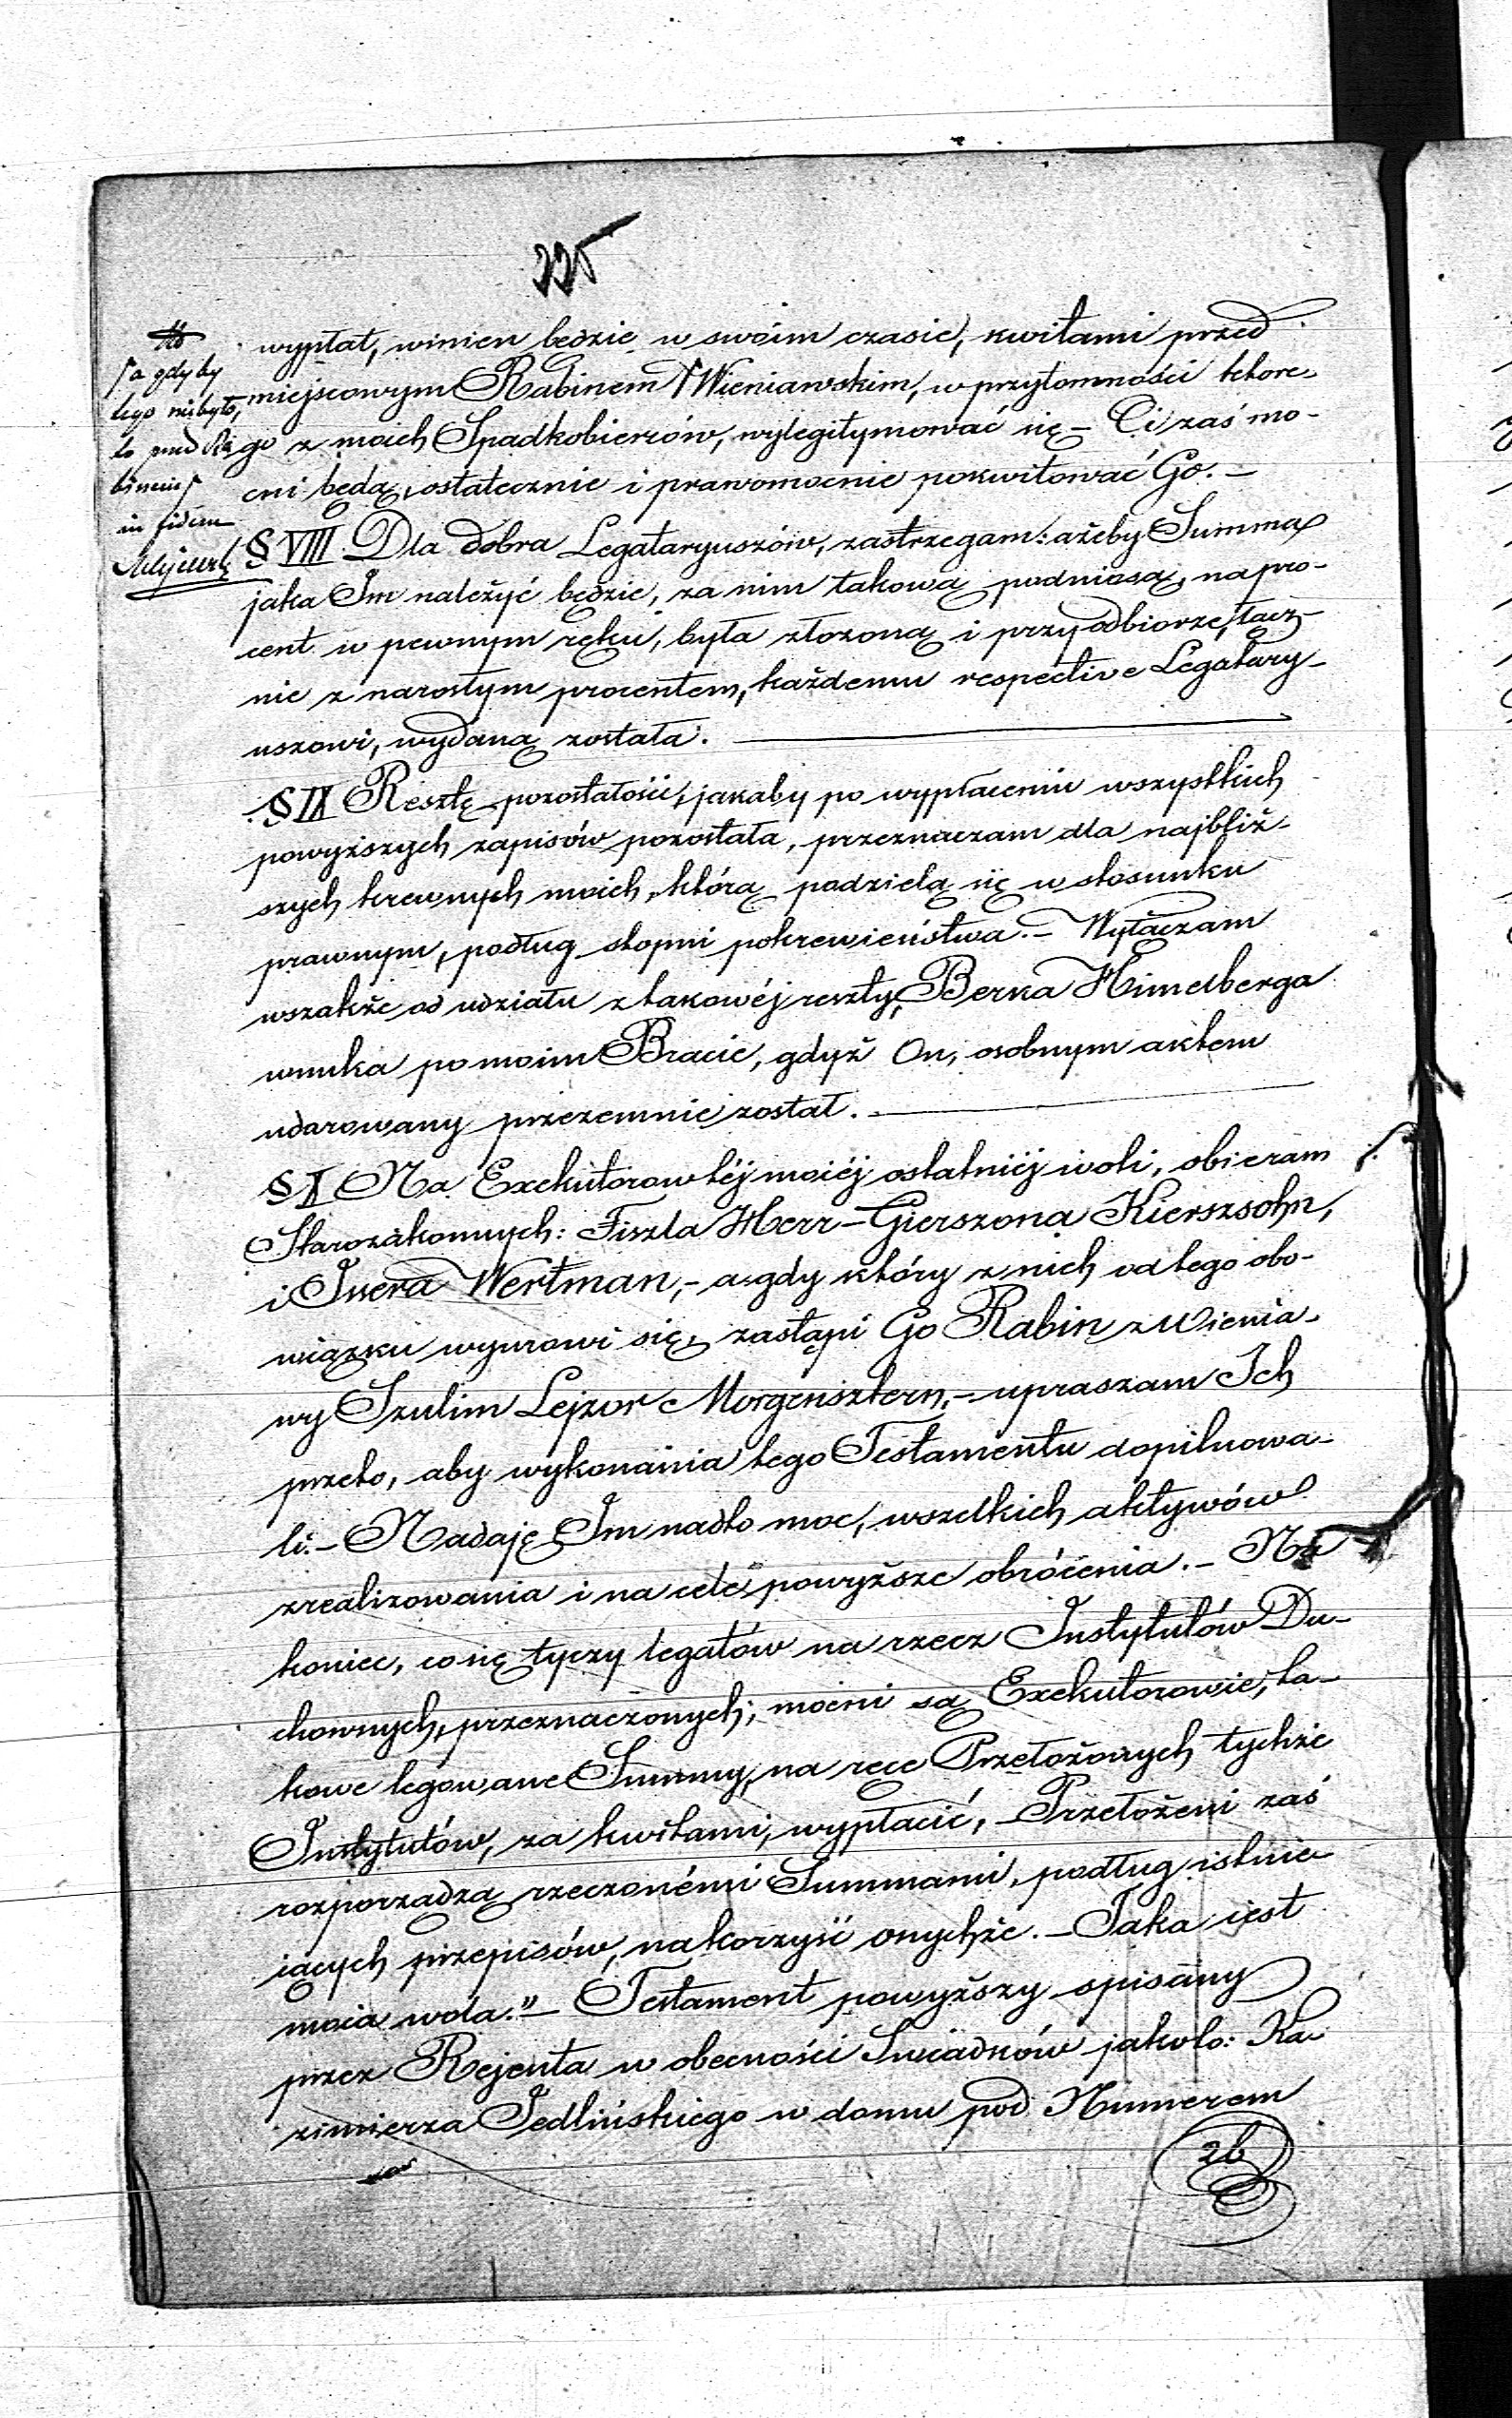 225
wypłat, winien będzie w swoim czasie, kwitami przed
miejscowym Rabinem Wieniawskim, w przytomności które-
go z moich Spadkobierców, wylegitymować się – Ci zaś mo-
cni będą, ostatecznie i prawomocnie pokwitować Go. –
/a gdyby
tego niebyło,
to przed Ra
binem/
in fidem
§ VIII Dla dobra Legataryuszów, zastrzegam: ażeby Summa
jaka Im należyć będzie, za nim takową podniosą, na pro-
cent w pewnym ręku, była złożoną i przy odbiorze, łącz-
nie z narosłym procentem, każdemu respective Legatary-
uszowi, wydaną została.
§ IX Resztę pozostałości, jakaby po wypłaceniu wszystkich
powyższych zapisów pozostała, przeznaczam dla najbliż-
szych krewnych moich, którą podzielą się w stosunku
prawnym, podług stopni pokrewieństwa. – Wyłączam
wszakże od udziału z takowéj reszty, Berka Himelberga
wnuka po moim Bracie, gdyż On, osobnym aktem
udarowany przezemnie został.
§ X Na Exekutorow téj moiéj ostatniéj woli, obieram
Starozakonnych: Fiszla Herr – Gierszona Kierszsohn,
i Issera Wertman, – a gdy który z nich od tego obo-
wiązku wymowi się, zastąpi Go Rabin z Wienia-
wy Szulim Lejzor Morgensztern, – upraszam Ich
przeto, aby wykonania tego Testamentu dopilnowa-
li. – Nadaję Im nadto moc, wszelkich aktywów
zrealizowania i na cele powyższe obrócenia. – Na
koniec, co się tyczy legatów na rzecz Instytutów Du-
chownych, przeznaczonych; mocni są Exekutorowie, ta-
kowe legowane Summy, na ręce Przełożonych tychże
Instytutów, za kwitami, wypłacić, – Przełożeni zaś
rozporządzą rzeczonémi Summami, podług istnie-
iących przepisów, na korzyść onychże. – Taka iest
moia wola." – Testament powyższy spisany
przez Rejenta w obecności Swiadków jakoto: Ka
zimierza Jedlińskiego w domu pod Numerem
26